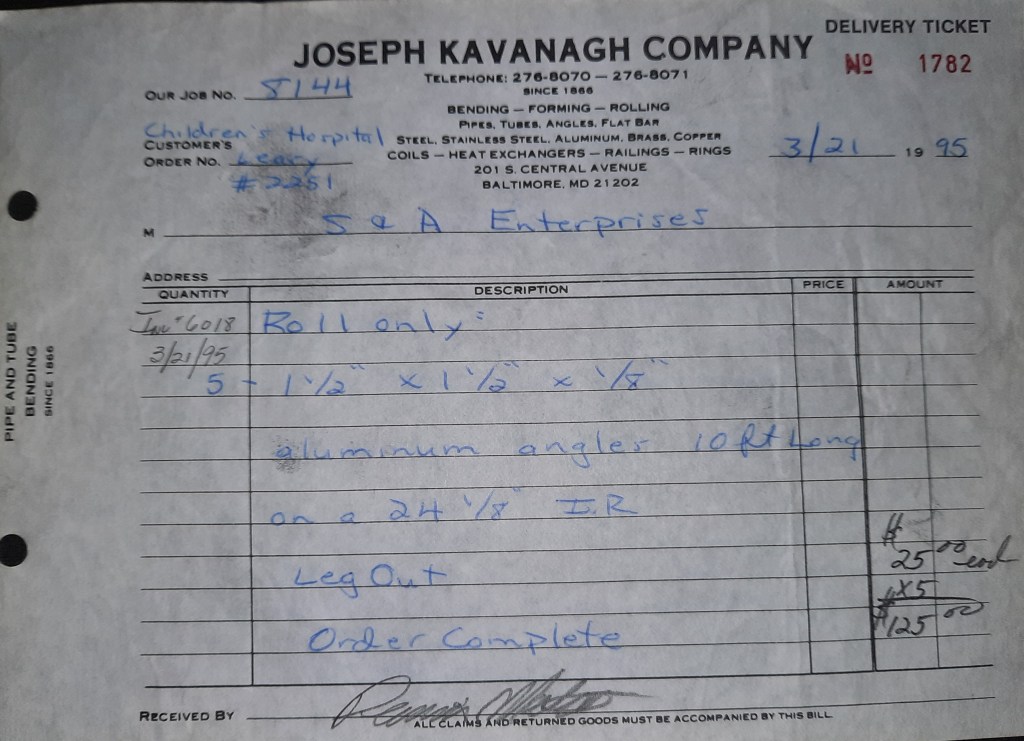 DELIVERY TICKET
JOSEPH KAVANAGH COMPANY
Nº 1782
TELEPHONE: 276-8070 — 276-8071
SINCE 1866
OUR JOB NO. 8144
BENDING — FORMING — ROLLING
PIPES, TUBES, ANGLES, FLAT BAR
Children's Hospital
STEEL, STAINLESS STEEL, ALUMINUM, BRASS, COPPER
CUSTOMER'S
ORDER NO. Leary
COILS — HEAT EXCHANGERS — RAILINGS — RINGS
3/21 19 95
# 2251
201 S. CENTRAL AVENUE
BALTIMORE, MD 21202
M S & A Enterprises
ADDRESS
QUANTITY DESCRIPTION PRICE AMOUNT
Inv # 6018 Roll only:
3/21/95
5 - 1 1/2" x 1 1/2" x 1/8"
aluminum angles 10 ft Long
on a 24 1/8" I.R
$
25 00 each
Leg Out
x5
$125 00
Order Complete
RECEIVED BY
ALL CLAIMS AND RETURNED GOODS MUST BE ACCOMPANIED BY THIS BILL
PIPE AND TUBE
BENDING
SINCE 1866